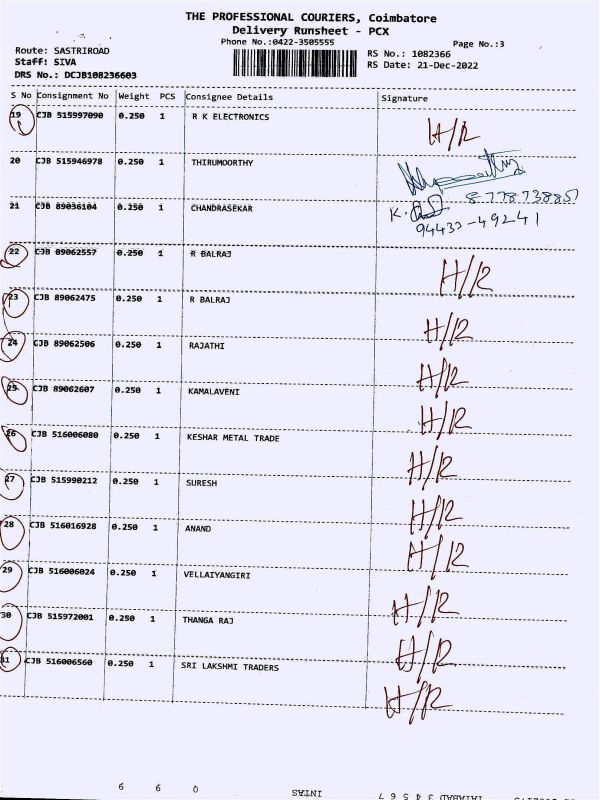 THE PROFESSIONAL COURIERS, Coimbatore
Delivery Runsheet - PCX
Phone No.:0422-3505555
Page No.:3
Route: SASTRIROAD
Staff: SIVA
DRS No.: DCJB108236603
RS No.: 1082366
RS Date: 21-Dec-2022
S No Consignment No Weight PCS Consignee Details Signature
19 CJB 515997090 0.250 1 R K ELECTRONICS H/R
20 CJB 515946978 0.250 1 THIRUMOORTHY
21 CJB 89036104 0.250 1 CHANDRASEKAR K.
94433-49241
22 CJB 89062557 0.250 1 R BALRAJ H/R
23 CJB 89062475 0.250 1 R BALRAJ H/R
24 CJB 89062506 0.250 1 RAJATHI H/R
25 CJB 89062607 0.250 1 KAMALAVENI H/R
26 CJB 516006080 0.250 1 KESHAR METAL TRADE H/R
27 CJB 515990212 0.250 1 SURESH H/R
28 CJB 516016928 0.250 1 ANAND H/R
29 CJB 516006024 0.250 1 VELLAIYANGIRI H/R
30 CJB 515972001 0.250 1 THANGA RAJ H/R
31 CJB 516006560 0.250 1 SRI LAKSHMI TRADERS H/R